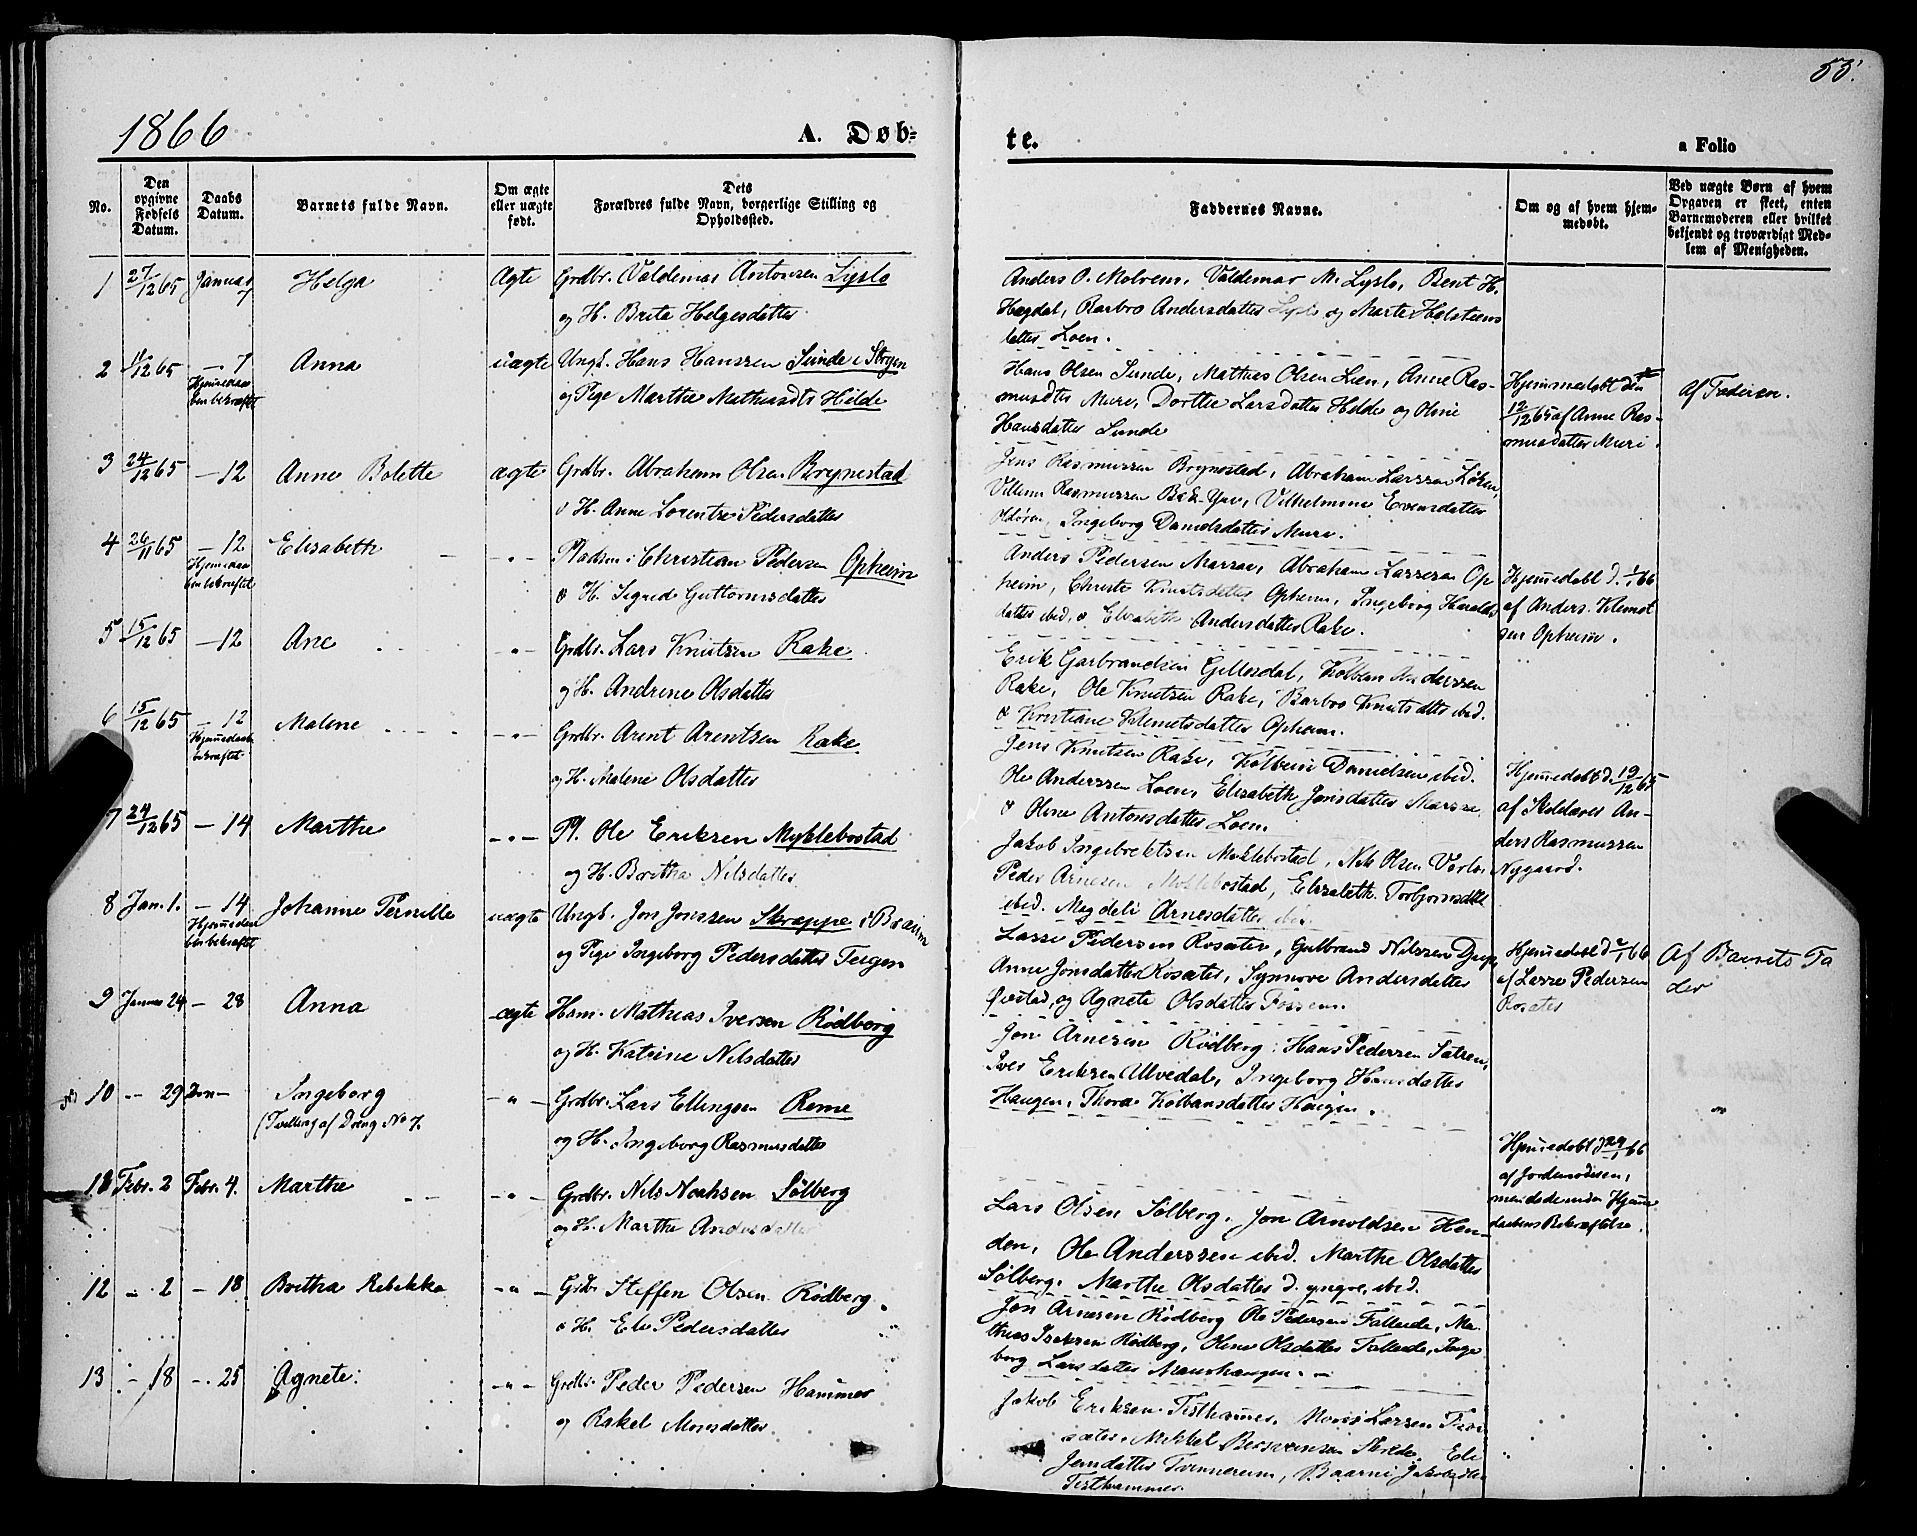 55.
1866
A. Døb-
te.
a Folio
No.
Den opgivne Fødsels Datum.
Daabs Datum.
Barnets fulde Navn.
Om ægte eller uægte født.
Dets Forældres fulde Navn, borgerlige Stilling og Opholdssted.
Faddernes Navne.
Om og af hvem hjemmedøbt.
Ved uægte Børn af hvem Opgaven er skeet, enten Barnemoderen eller hvilket bekjendt og troværdigt Medlem af Menigheden.
1 27/12 65 Januar 7 Helga Ægte Grdbr. Valdemar Antonsen Lyslo
og H. Brita Helgesdatter
Anders O. Molvem, Valdemar M. Lyslo, Bent H.
Hægdal, Barbro Andersdatter Lyslo og Marte Holstiens
datter Loen.
2 11/12 65 — 7 Anna uægte Ungk. Hans Hanssen Sunde i Stryen
Hjemmedaaben bekræftet
og Pige Marthe Mathiasdtr Hilde
Hans Olsen Sunde, Mathies Olsen Loen, Anne Ras-
musdtr Muri, Dorthe Larsdatter Hilde og Oline
Hansdatter Sunde
Hjemmedøbt den
12/12 65 af Anne Ras-
musdatter Muri.
Af Faderen.
3 24/12 65 — 12 Anne Bolette ægte Grdbr. Abraham Olsen Brynestad
& H. Anne Lorentse Pedersdatter
Jens Rasmussen Brynestad, Abraham Larssen Løken,
Villum Rasmussen Bak-Yav, Vilhelmine Evensdatter
Oldøren, Ingeborg Danielsdatter Muri.
4 26/11 65 — 12 Elisabeth — " — Pladsm. Christian Pedersen Opheim
Hjemmedaaben bekræftet
& H. Sigrid Guttormsdatter
Anders Pedersen Marsaa, Abraham Lassesen Op
heim, Christi Knutsdatter Opheim, Ingeborg Haralds
datter ibid, & Elisabeth Andersdatter Rake.
Hjemmedøbt d. 1/1 66
af Anders Klemet
sen Opheim.
5 15/12 65 — 12 Ane — " — Grdbr. Lars Knutsen Rake
og H. Andrine Olsdatter
Erik Garbrandsen Gillesdal, Kolbein Anderssen
Rake, Ole Knutsen Rake, Barbro Knutsdtr ibid.
& Kristiane Klemetsdatter Opheim.
6 15/12 65 — 12 Malene — " — Grdbr. Arent Arentsen Rake
Hjemmedaaben bekræftet
og H. Malene Olsdatter
Jens Knutsen Rake, Kolbein Danielsen ibid.
Ole Anderssen Loen, Elisabeth Jonsdatter Marsaa
& Oline Antonsdatter Loen.
Hjemmedøbt d. 19/12 65
af Skolelærer An-
ders Rasmussen
Nygaard.
7 24/12 65 — 14 Marthe — " — Pl. Ole Eriksen Myklebostad
og H. Britha Nilsdatter
Jakob Ingebrektsen Myklebostad, Nils Olsen
Peder Arnesen Myklebostad, Elisabeth Torbjørnsdtr
ibid. Magdeli Arnesdatter ibid.
8 Jan. 1. — 14 Johanne Pernille uægte Ungk. Jon Jonssen Skrappe i Bræim
Hjemmedaaben bekræftet
og Pige Ingeborg Pedersdatter Teigen
Lasse Pedersen Rosæter, Gulbrand Nilssen
Anne Jonsdatter Rosæter, Synnøve Andersdatter
Øvstad, og Agnete Olsdatter Fossem.
Hjemmedøbt d. 2/1 66
af Lasse Pedersen
Rosæter
Af Barnets Fa
der
9 Januar 24 — 28 Anna ægte Hsm. Mathias Iversen Rødberg
og H. Katrine Nilsdatter
Jon Arnesen Rødberg, Hans Pedersen Sætren,
Iver Eriksen Ulvedal, Ingeborg Hansdatter
Haugen, Thora Kolbansdatter Haugen.
10 — 29 Ingeborg — " — Grdbr. Lars Ellingsen Reme
(Tvilling af Dreng No 7.
og H. Ingeborg Rasmusdatter
Hjemmedøbt d 29/1 66
af Jordemoderen,
men døde uden Hjemme
daabens Bekræftelse.
11 Febr. 2 Febr. 4. Marthe — " — Grdbr. Nils Noahsen Sølberg
og H. Marthe Andersdatter
Lars Olsen Sølberg, Jon Arnoldsen Hen-
den, Ole Anderssen ibid. Marthe Olsdatter
Sølberg, Marthe Olsdatter d. yngre, ibid.
12 — 2 — 18 Britha Rebekka — " — Grdbr. Steffen Olsen Rødberg
& H. Eli Pedersdatter
Jon Arnesen Rødberg Ole Pedersen Falleide, Ma-
thias Isaksen Rødberg, Oline Olsdatter Falleide, Inge
borg Larsdatter Maurhaugen.
13 — 18 — 25 Agnete — " — Grdbr. Peder Pedersen Hammer
og Rakel Monsdatter
Jakob Eriksen Tisthamer, Mons Larsen
sæter, Mikkel Bersvensen Skrede, Eli
Jonsdatter Tvinnereim, Jakobsdtr
Tisthammer.